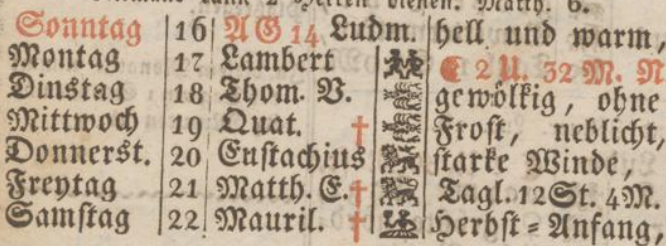 Niemand kann 2 Herren dienen. Matth. 6.
Sonntag 16 A G 14 Ludm. hell und warm,
Montag 17 Lambert ☾ 2 U. 32 M. N
Dinstag 18 Thom. V. gewölkig, ohne
Mittwoch 19 Quat. † Frost, neblicht,
Donnerst. 20 Eustachius starke Winde,
Freytag 21 Matth. E. † Tagl. 12 St. 4 M.
Samstag 22 Mauril. † Herbst-Anfang,